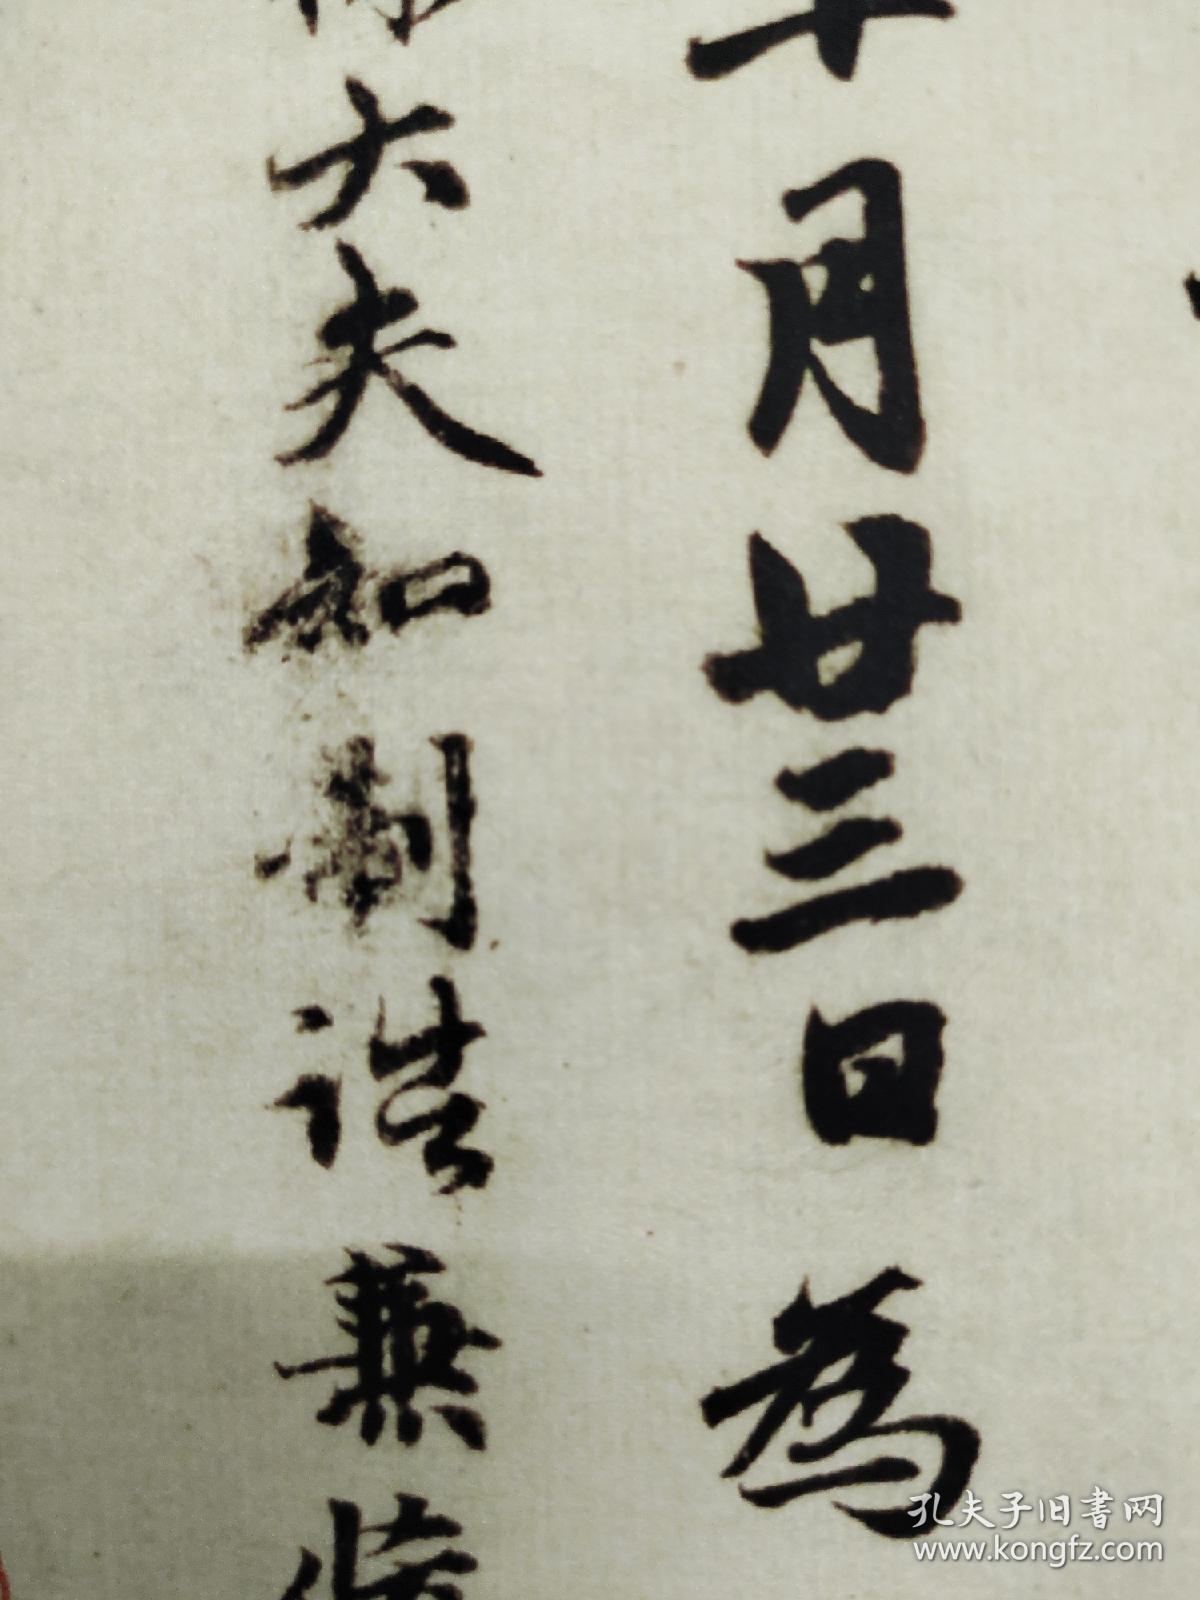 十月廿三日為
大夫知制誥兼
孔夫子旧書网
www.kongfz.com